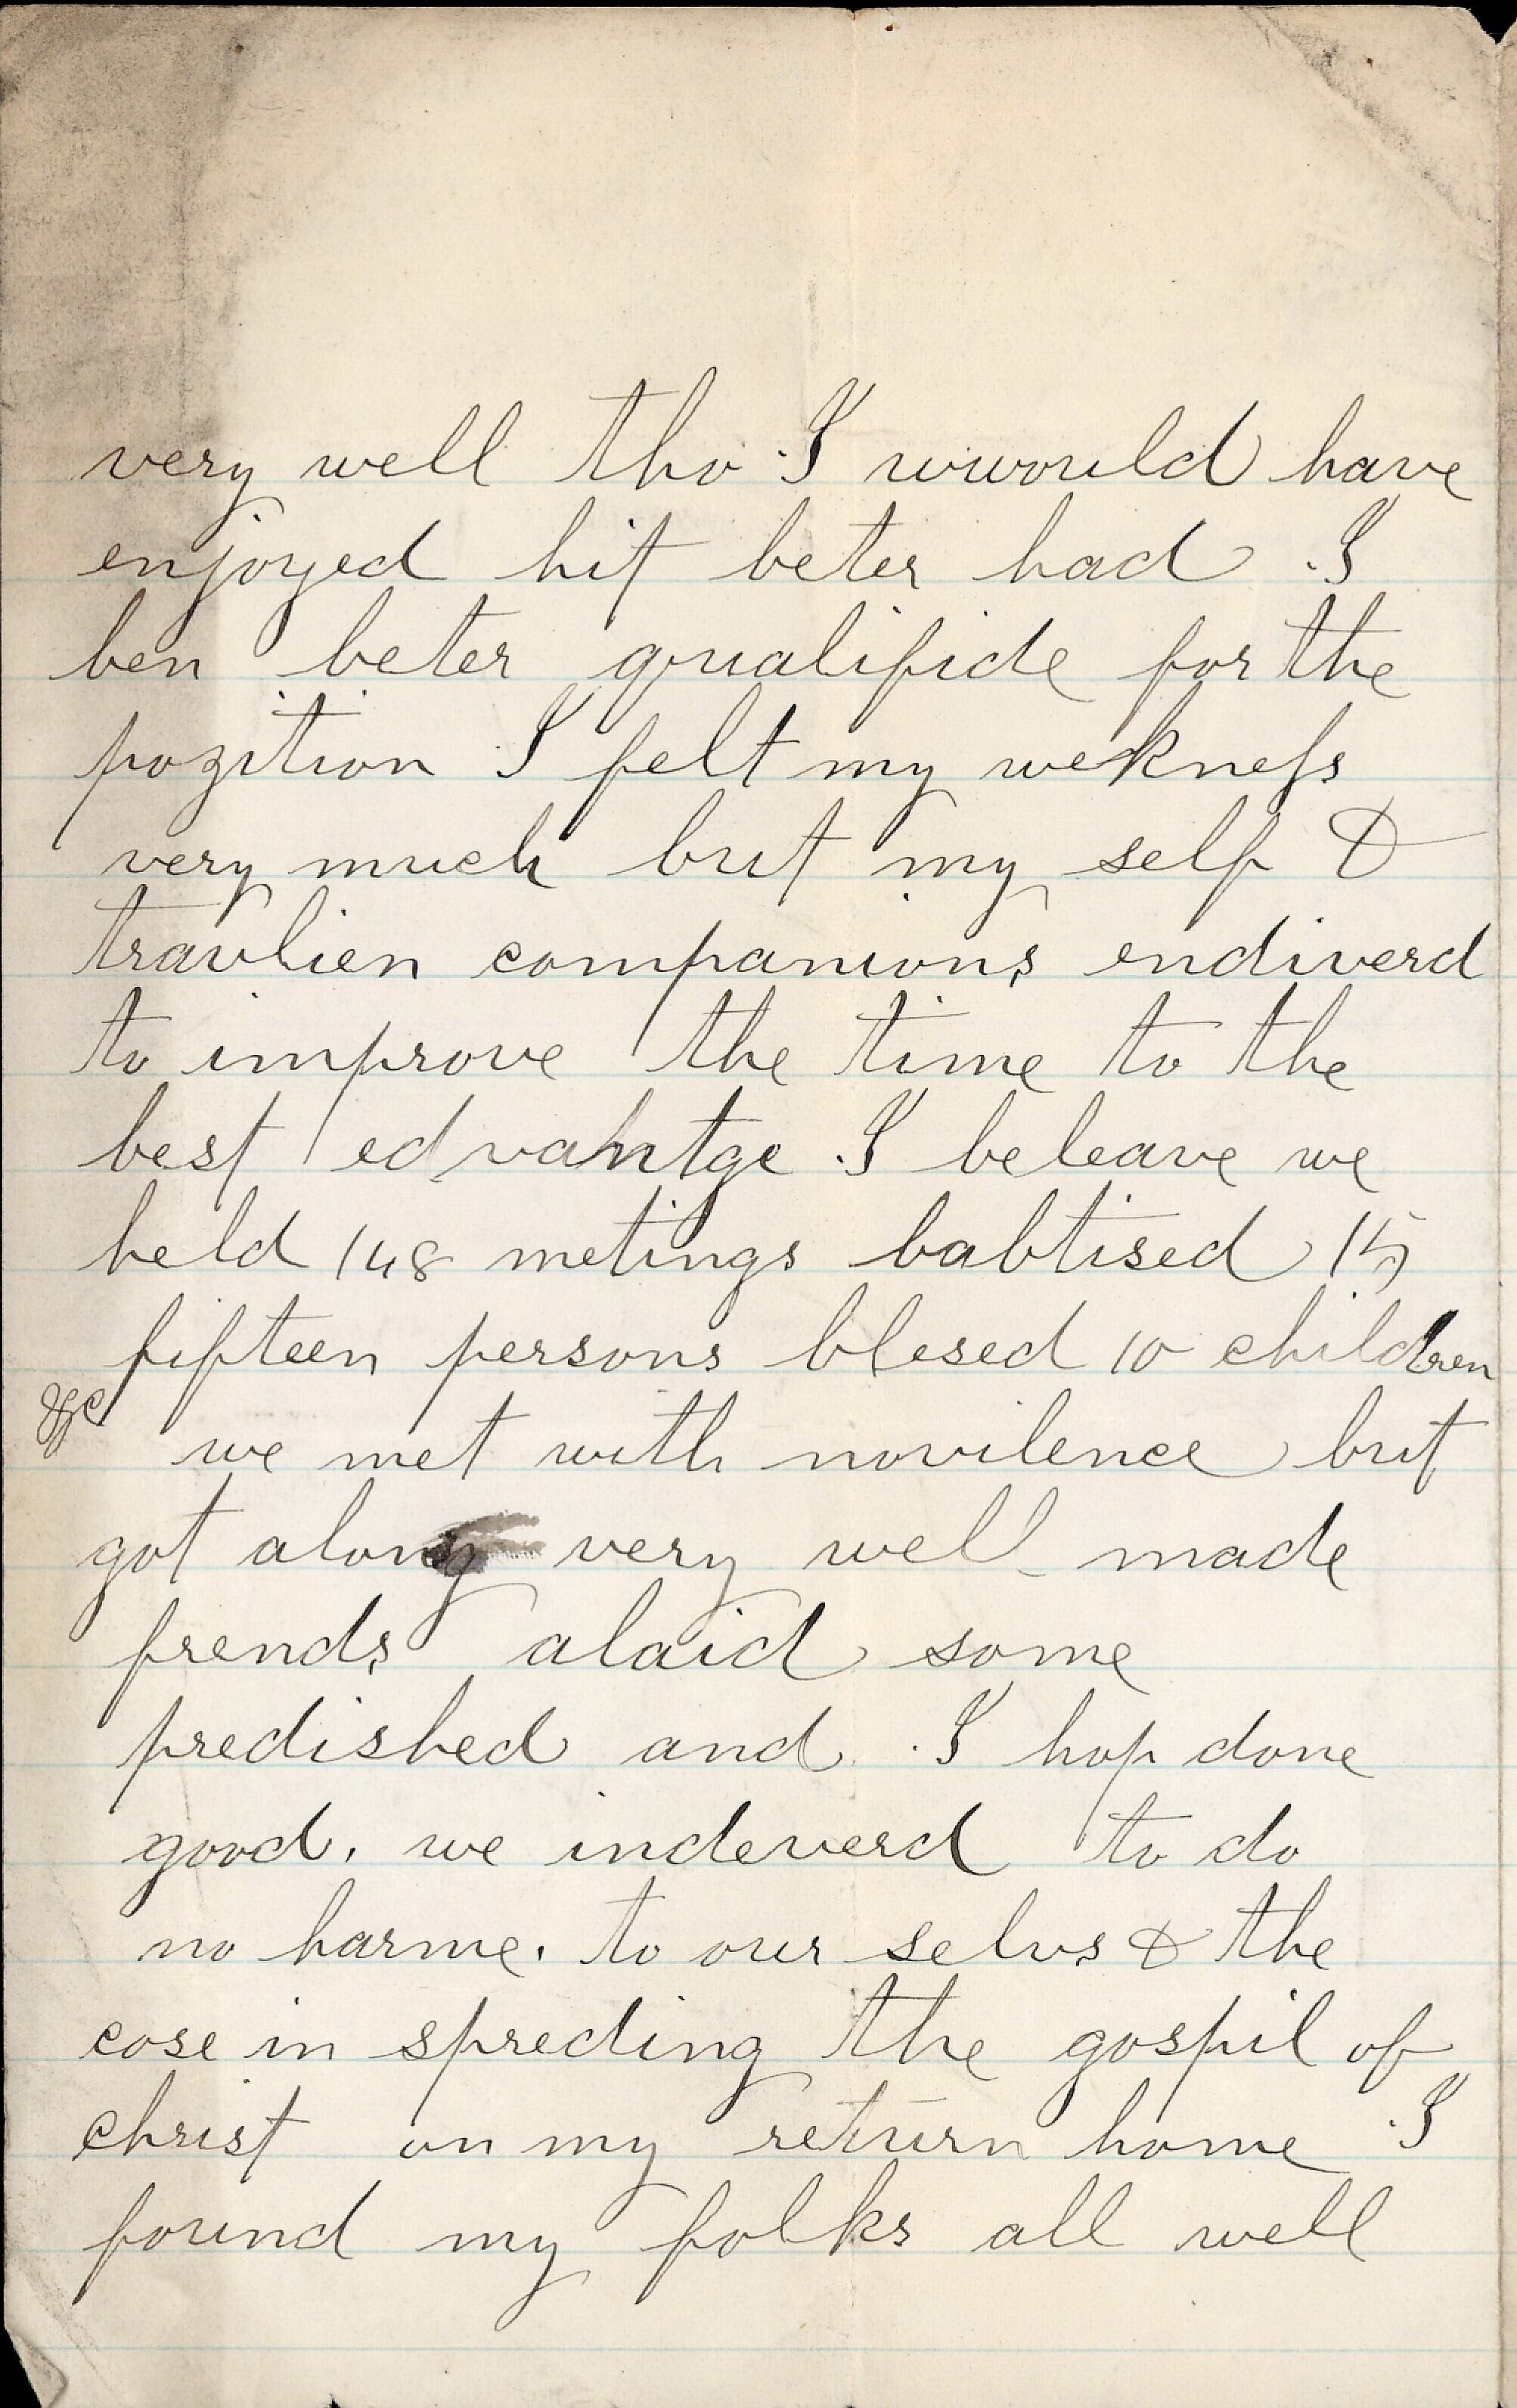 very well tho I wwould have
enjoyed hit beter had I
ben beter qualifide for the
pozition I felt my wekness
very much but my self &
travlien companions endiverd
to improve the time to the
best edvahtge I beleave we
held 148 metings babtised 15
fifteen persons blesed 10 children
&c we met with novilence but
got along very well made
frends alaid some
predished and I hop done
good. we indeverd to do
no harme. to our selvs & the
cose in spreding the gospil of
christ on my return home I
found my folks all well